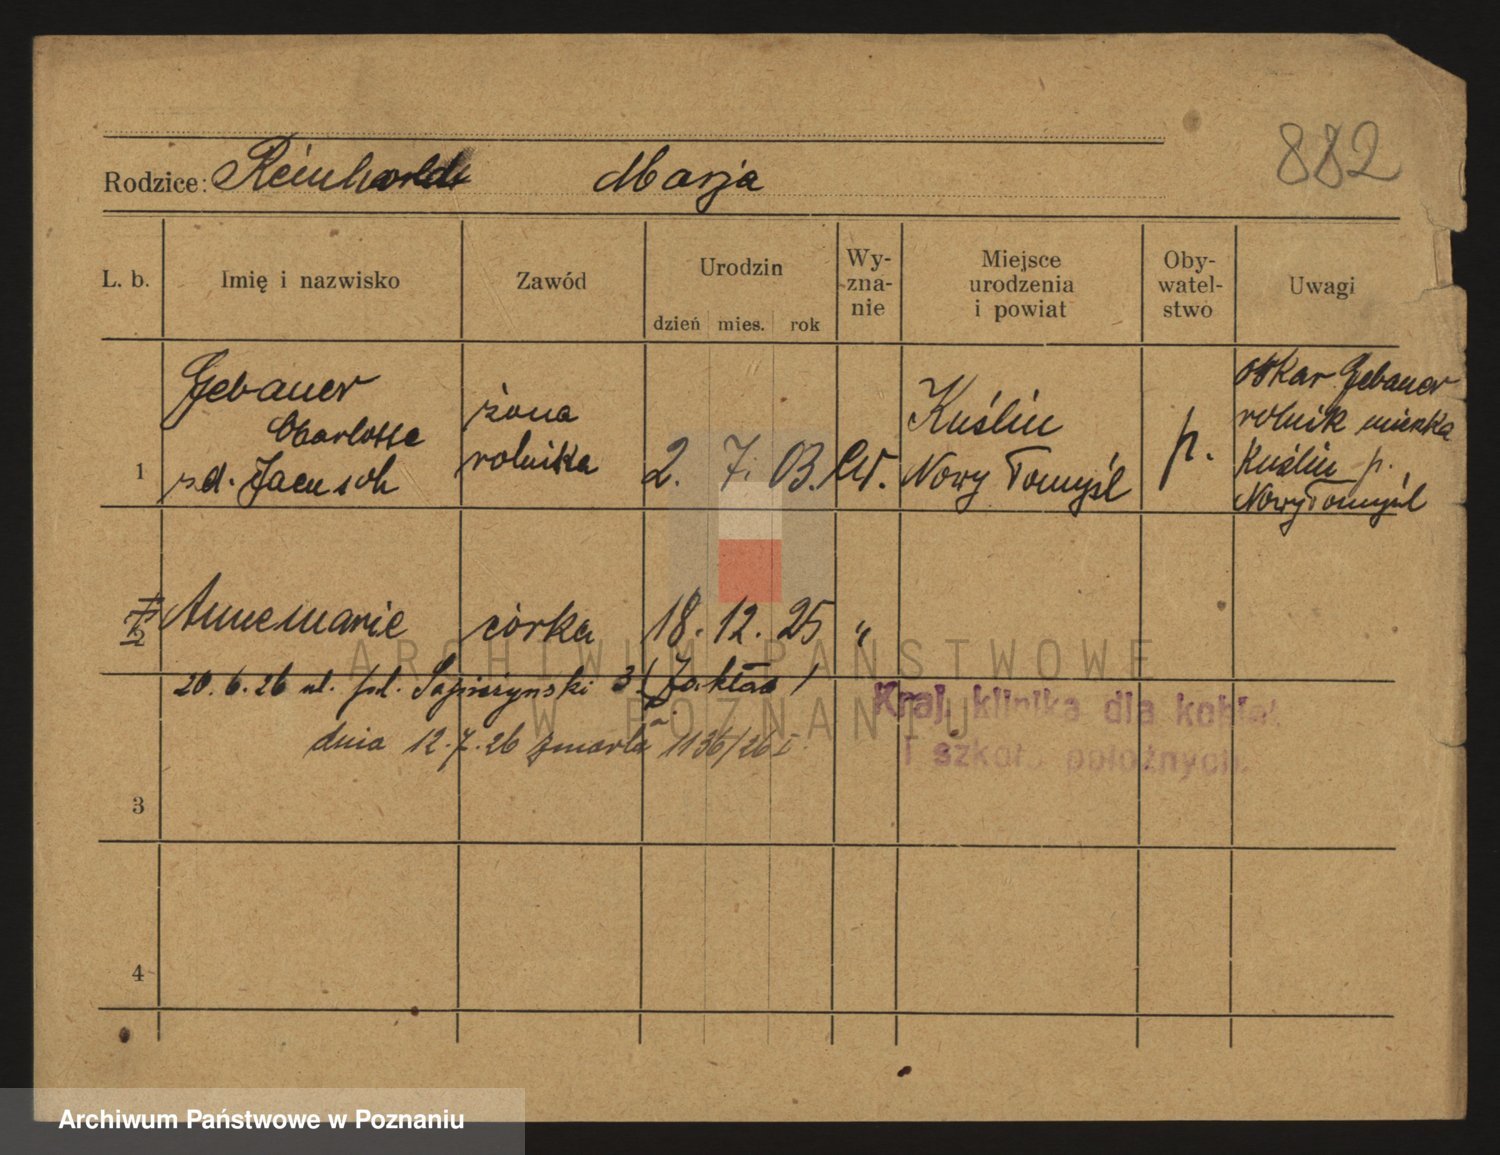 882
Rodzice: Reinhold Marja
L. b. Imię i nazwisko Zawód Urodzin dzień mies. rok Wy-zna-nie Miejsce urodzenia i powiat Oby-watel-stwo Uwagi
1
Gebauer
Charlotte
żona
rolnika
2. 7. 03.
Ew.
Kuślin
Nowy Tomyśl
p.
Oskar Gebauer
rolnik mieszka
Kuślin p.
Nowy Tomyśl
2
Annemarie córka 18. 12. 25 "
20. 6. 26 ul. Sapieżynski 3 (Zakład)
dnia 12. 7. 26 zmarła 1136/26
Kraj. klinika dla kobiet
i szkoła położnych.
3
4
ARCHIWUM PAŃSTWOWE
W POZNANIU
Archiwum Państwowe w Poznaniu